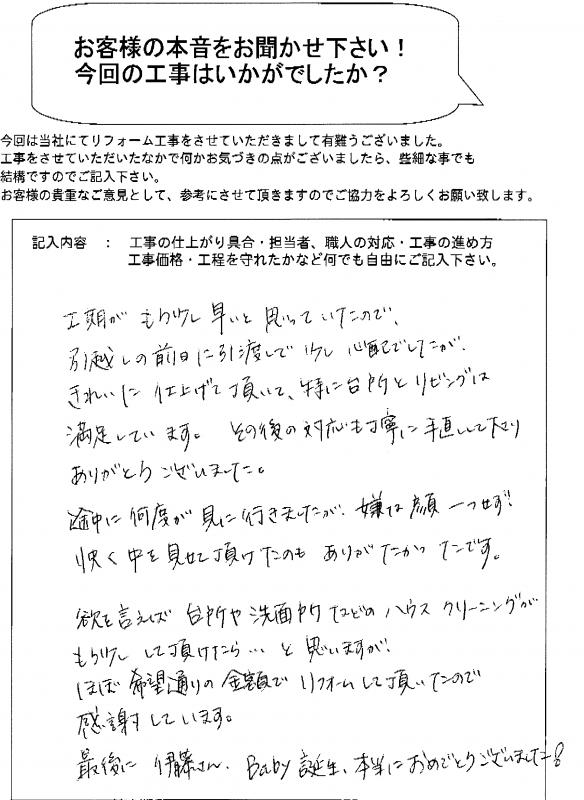 お客様の本音をお聞かせ下さい！
今回の工事はいかがでしたか？
今回は当社にてリフォーム工事をさせていただきまして有難うございました。
工事をさせていただいたなかで何かお気づきの点がございましたら、些細な事でも
結構ですのでご記入下さい。
お客様の貴重なご意見として、参考にさせて頂きますのでご協力をよろしくお願い致します。
記入内容　：　工事の仕上がり具合・担当者、職人の対応・工事の進め方
工事価格・工程を守れたかなど何でも自由にご記入下さい。
工期がもう少し早いと思っていたので、
引越しの前日に引渡しで少し心配でしたが、
きれいに仕上げて頂いて、特に台所とリビングは
満足しています。その後の対応も丁寧に手直しして下さり
ありがとうございました。
途中に何度か見に行きましたが、嫌な顔一つせず！
快く中を見せて頂けたのもありがたかったです。
欲を言えば台所や洗面所などのハウスクリーニングが
もう少しして頂けたら…と思いますが！
ほぼ希望通りの金額でリフォームして頂いたので
感謝しています。
最後に伊藤さん、Baby誕生、本当におめでとうございました！